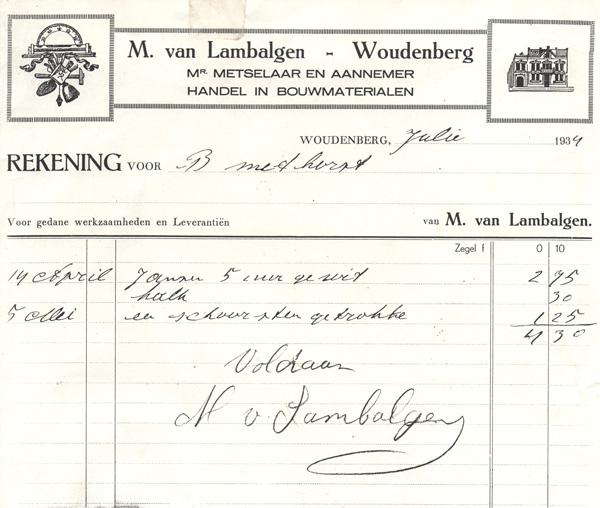 M. van Lambalgen - Woudenberg
Mr. METSELAAR EN AANNEMER
HANDEL IN BOUWMATERIALEN
WOUDENBERG, Julie 1934
REKENING VOOR B medhorst
Voor gedane werkzaamheden en Leverantiën van M. van Lambalgen.
Zegel f 0 10
14 April 5 uur gewit 2 75
kalk 30
5 Mei en schoorsten getrokke 1 25
4 30
Voldaan
M v. Lambalgen